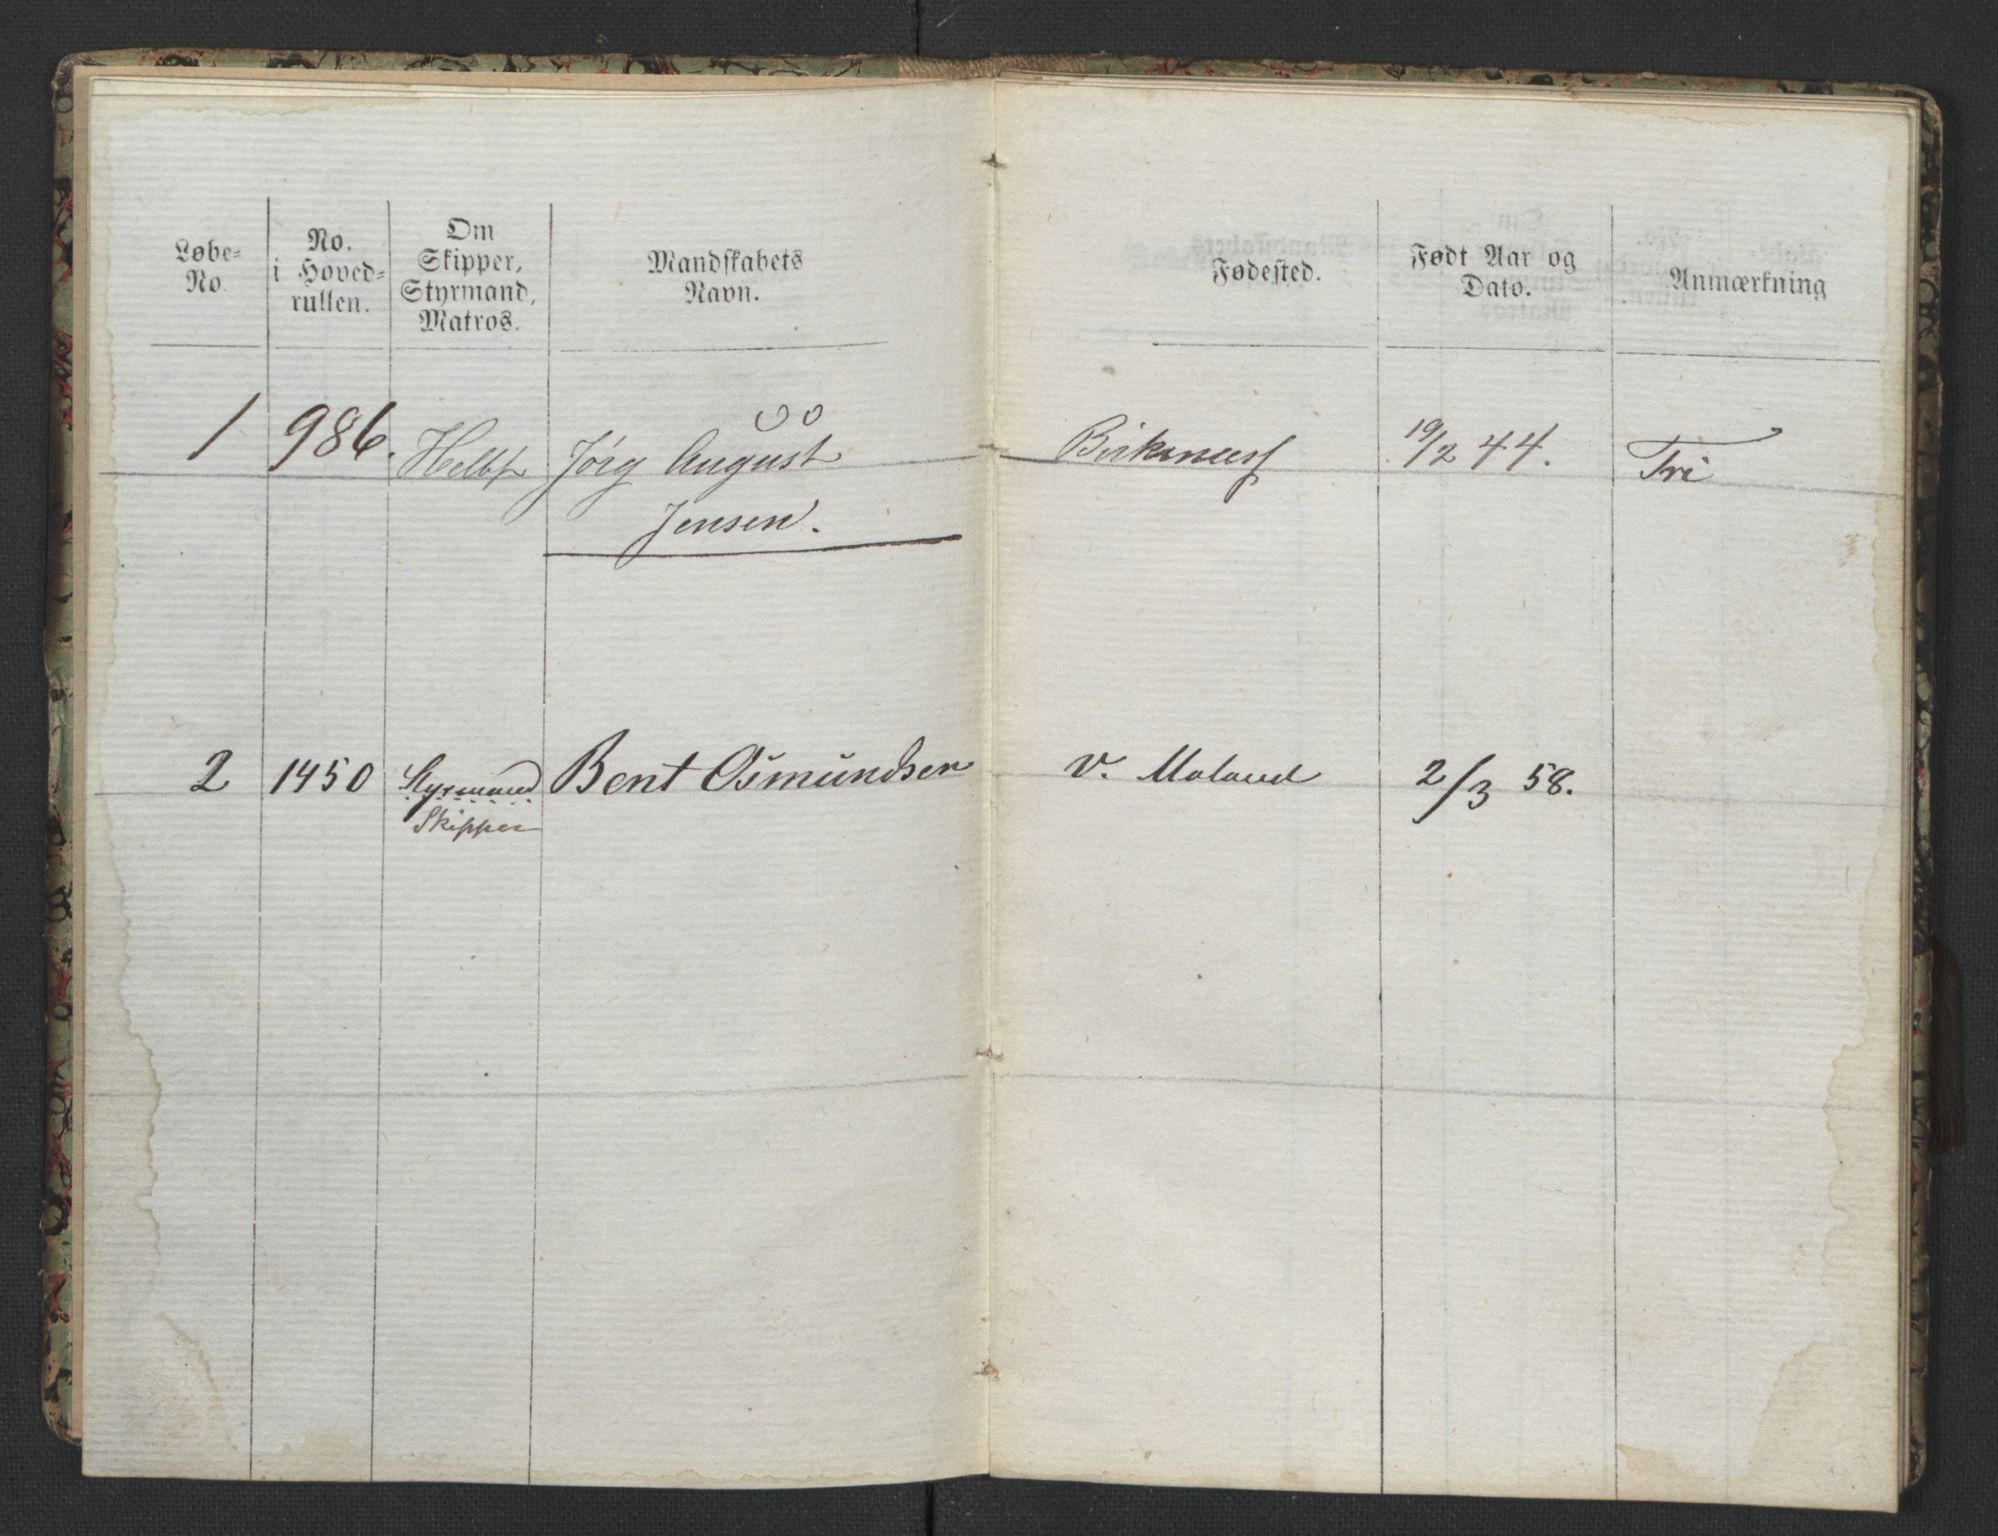 Løbe-
No.
No.
i Hoved-
rullen.
Om
Skipper,
Styrmand,
Matros.
Mandskabets
Navn.
Fødested.
Født Aar og
Dato.
Anmærkning
1 986. Helbf Jörg August Birkenæs 19/2 44. Fri
Jensen.
2 1450 Styrmand Bent Osmundsen V. Moland 2/3 58.
Skipper